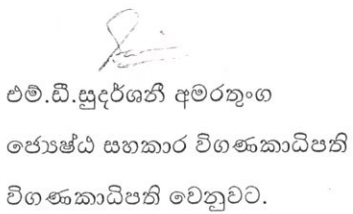 එම්.ඩී.සුදර්ශනී අමරතුංග
ජ්‍යෙෂ්ඨ සහකාර විගණකාධිපති
විගණකාධිපති වෙනුවට.